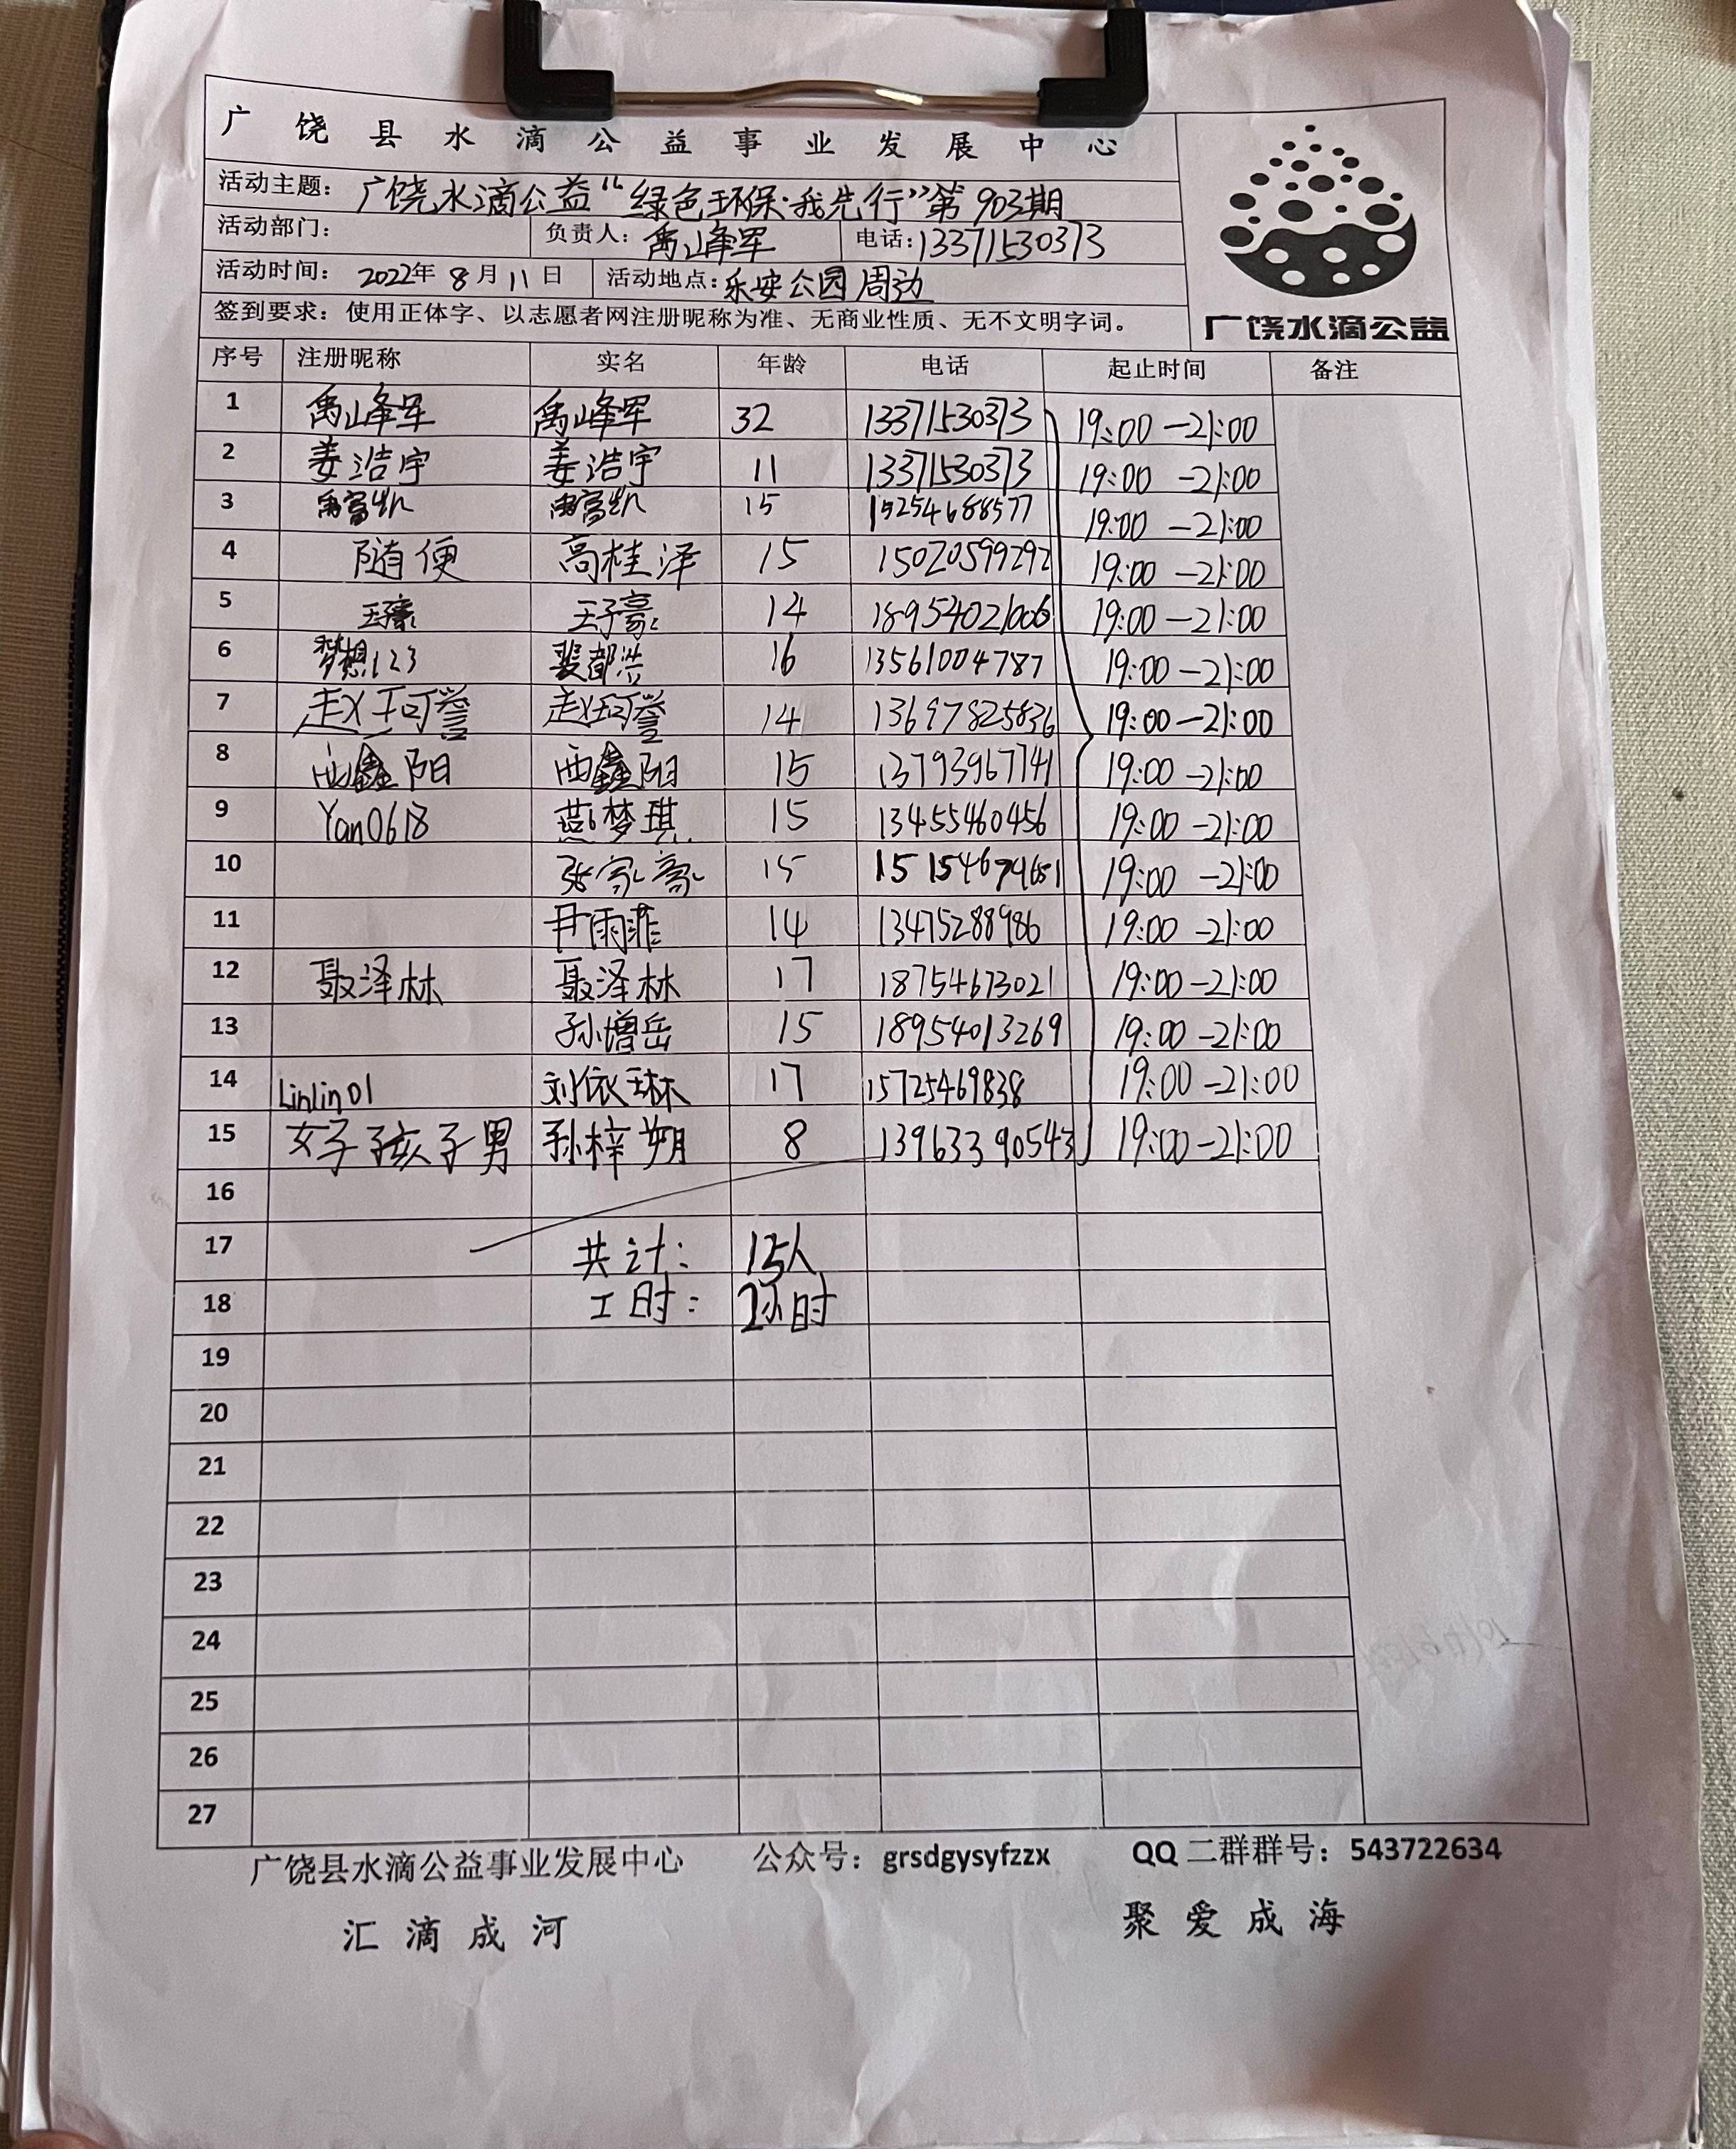 广饶县水滴公益事业发展中心
活动主题：广饶水滴公益“绿色环保·我先行”第903期
活动部门： 负责人：禹峰军 电话：13371530373
活动时间：2022年8月11日 活动地点：乐安公园周边
签到要求：使用正体字、以志愿者网注册昵称为准、无商业性质、无不文明字词。
广饶水滴公益
序号 注册昵称 实名 年龄 电话 起止时间 备注
1 禹峰军 禹峰军 32 13371530373 19:00—21:00
2 姜浩宇 姜浩宇 11 13371530373 19:00—21:00
3 禹富凯 禹富凯 15 15254688577 19:00—21:00
4 随便 高桂泽 15 15020599292 19:00—21:00
5 王子豪 14 18954021006 19:00—21:00
6 梦想123 裴都浩 16 13561004787 19:00—21:00
7 赵珂誉 赵珂誉 14 13697825836 19:00—21:00
8 西鑫阳 西鑫阳 15 13793967741 19:00—21:00
9 Yan0618 燕梦琪 15 13455460456 19:00—21:00
10 张家豪 15 15154674651 19:00—21:00
11 尹雨菲 14 13475288986 19:00—21:00
12 聂泽林 聂泽林 17 18754673021 19:00—21:00
13 孙增岳 15 18954013269 19:00—21:00
14 Linlin01 刘依琳 17 15725469838 19:00—21:00
15 女子孩子男 孙梓朔 8 13963390543 19:00—21:00
16
17 共计： 15人
18 工时： 2小时
19
20
21
22
23
24
25
26
27
广饶县水滴公益事业发展中心 公众号：grsdgysyfzzx QQ二群群号：543722634
汇滴成河 聚爱成海